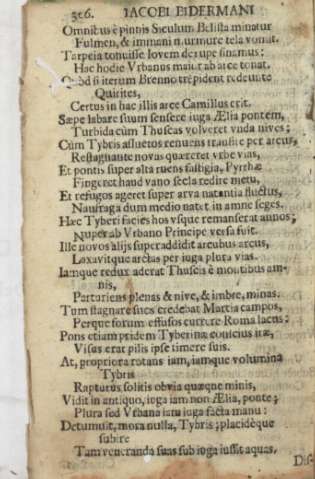 326. IACOBI BIDERMANI
Omnibus è pinnis Siculum Belista minatur
Fulmen, & immani murmure tela vomit.
Tarpeia tonuisse Iovem de rupe sinamus:
Hac hodie Vrbanus maior ab arce tonat.
Quòd si iterum Brenno trepident redeunte
Quirites,
Certus in hac illis arce Camillus erit.
Sæpe labare suum sensere iuga Ælia pontem,
Turbida cùm Thuscas volveret unda nives;
Cùm Tybris assuetos renuens transire per arcus,
Restagnante novas quæreret vrbe vias,
Et pontis super alta ruens fastigia, Pyrrhæ
Fingeret haud vano secla redire metu,
Et refugos ageret super arva natantia fluctus,
Naufraga dum medio natet in amne seges.
Hæc Tyberi facies hos vsque remanserat annos;
Nuper ab Vrbano Principe versa fuit.
Ille novos alijs superaddidit arcubus arcus,
Laxavitque arctas per iuga plura vias.
Iamque redux aderat Thuscis è montibus am-
nis,
Parturiens plenas & nive, & imbre, minas.
Tum stagnare suos credebat Martia campos,
Perque forum effusos currere Roma lacus:
Pons etiam pridem Tyberinæ conscius iræ,
Visus erat pilis ipse timere suis.
At, propiora rotans iam, iamque volumina
Tybris
Rapturus solitis obvia quæque minis,
Vidit in antiquo, iuga iam non Ælia, ponte;
Plura sed Vrbana iam iuga facta manu:
Detumuit, mora nulla, Tybris; placidèque
subire
Tam veneranda suas sub iuga iussit aquas,
Dis-